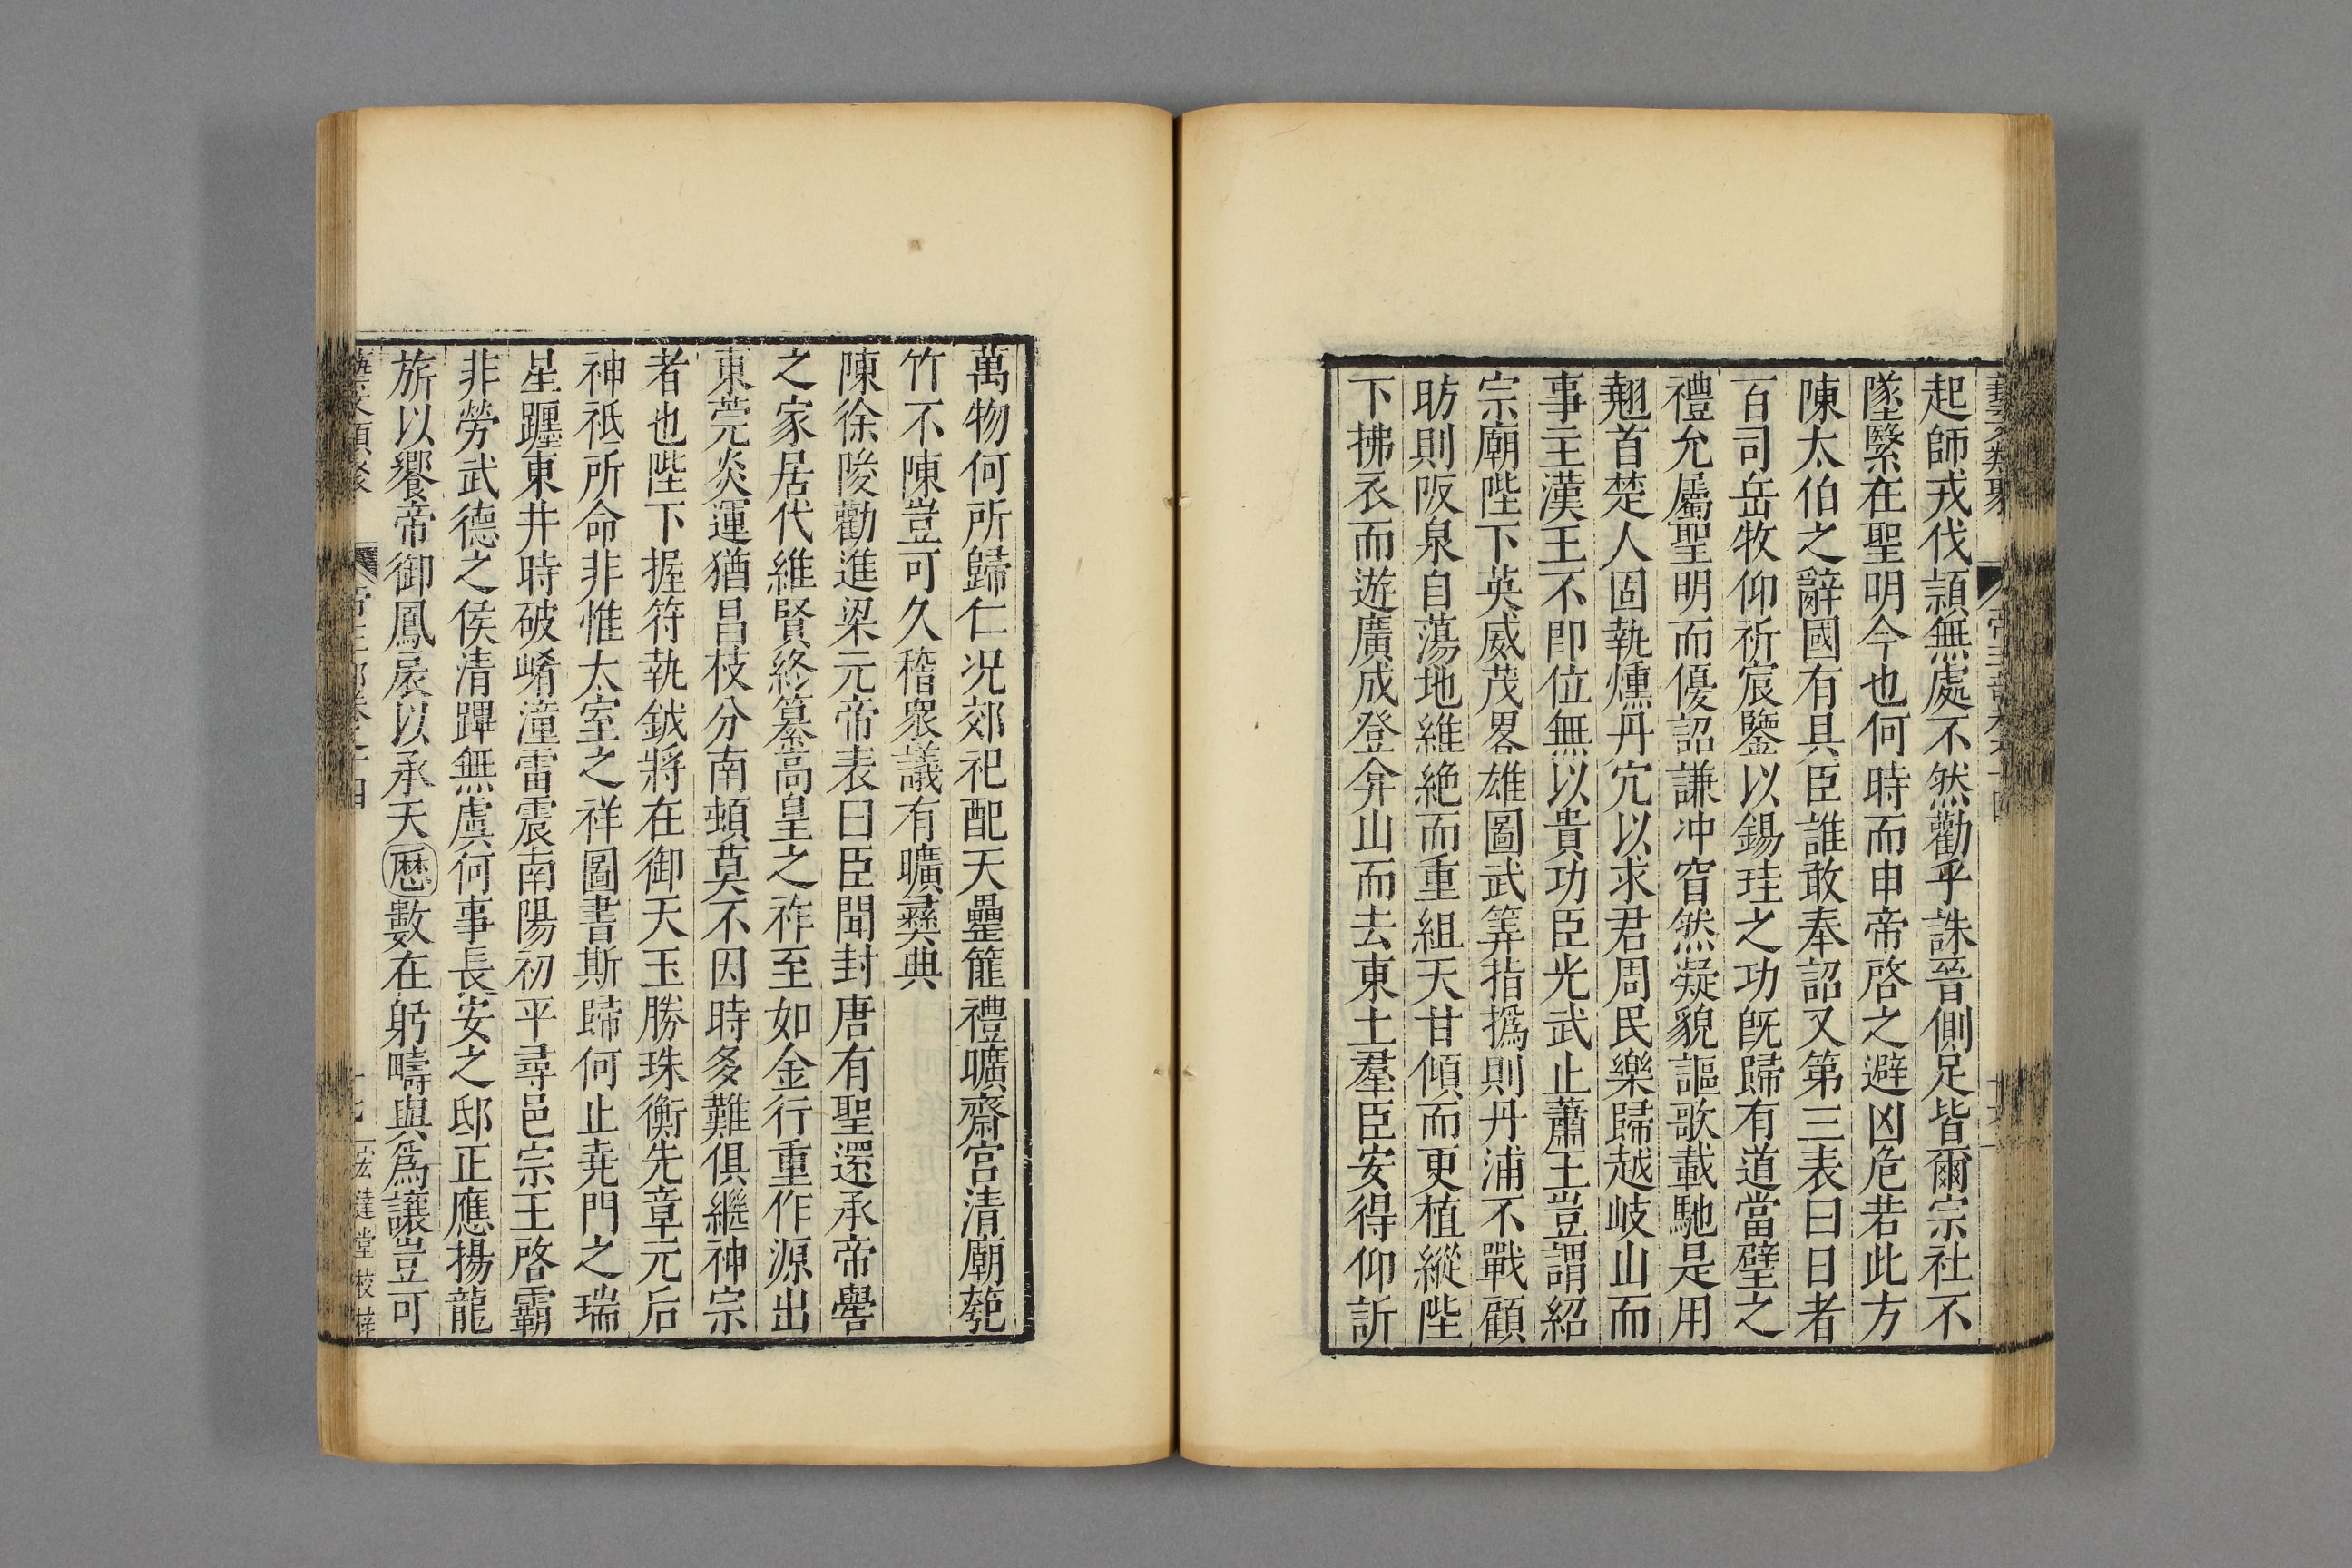 藝文類聚 帝王部卷之十四
起師戎伐潁無處不然勸乎誅晉側足皆爾宗社不
墜緊在聖明今也何時而申帝啓之避凶危若此方
陳太伯之辭國有具臣誰敢奉詔又第三表曰日者
百司岳牧仰祈宸鑒以錫珪之功旣歸有道當璧之
禮允屬聖明而優詔謙冲窅然凝貌謳歌載馳是用
翹首楚人固執燻丹宂以求君周民樂歸越岐山而
事主漢王不卽位無以貴功臣光武止蕭王豈謂紹
宗廟陛下英威茂畧雄圖武筭指撝則丹浦不戰顧
昉則阪泉自蕩地維絶而重組天甘傾而更植縱陛
下拂衣而遊廣成登弇山而去東土羣臣安得仰訴
萬物何所歸仁况郊祀配天罍篚禮曠齋宮清廟匏
竹不陳豈可久稽衆議有曠彝典
陳徐陵勸進梁元帝表曰臣聞封唐有聖還承帝嚳
之家居代維賢終纂高皇之祚至如金行重作源出
東莞炎運猶昌枝分南頓莫不因時多難俱繼神宗
者也陛下握符執鉞將在御天玉勝珠衡先章元后
神祗所命非惟太室之祥圖書斯歸何止堯門之瑞
星躔東井時破崤潼雷震南陽初平尋邑宗王啓霸
非勞武德之侯清蹕無虞何事長安之邸正應揚龍
旂以饗帝御鳳扆以承天曆數在躬疇與爲讓豈可
藝文類聚 帝王部卷之十四 十七 宏達堂校梓